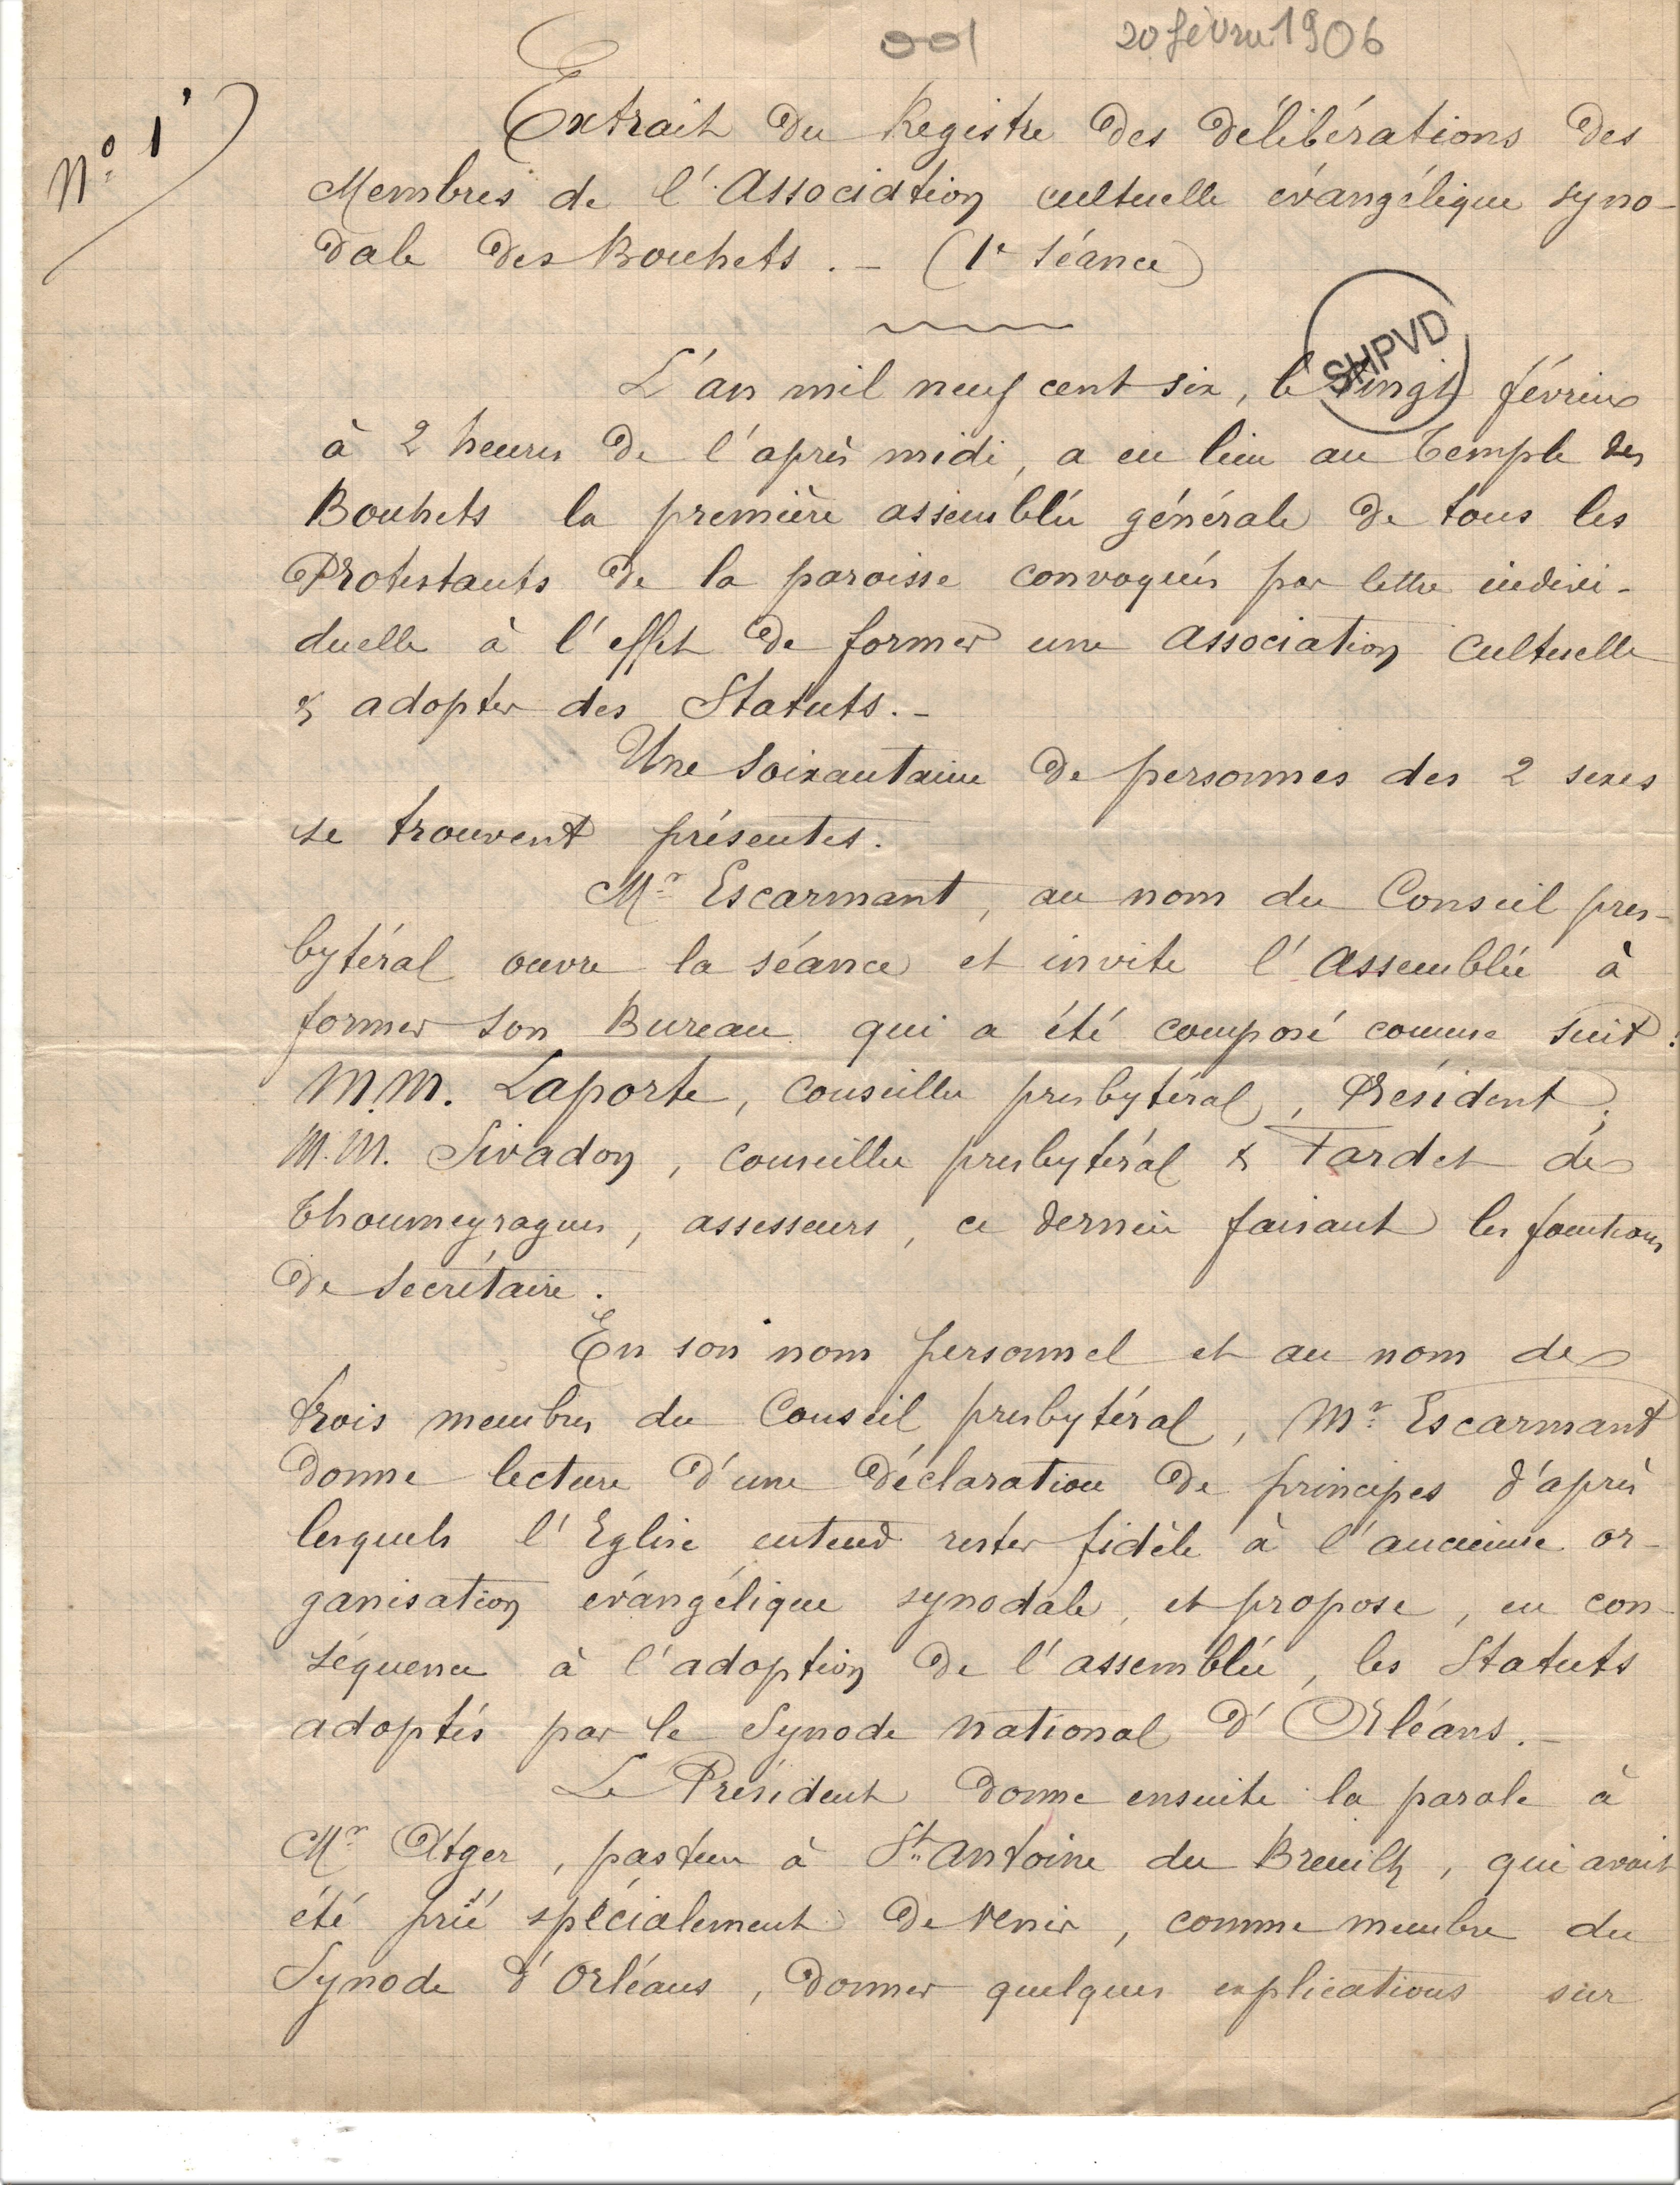 001 20 févrer 1906
N° 1
Extrait du Registre des délibérations des
Membres de l'Association cultuelle évangélique syno-
dale des Bouhets . - (1e Séance)
SHPVD
L'an mil neuf cent six, le vingt février
à 2 heures de l'après midi, a eu lieu au Temple des
Bouhets la première assemblée générale de tous les
Protestants de la paroisse convoqués par lettre indivi-
duelle à l'effet de former une association cultuelle
& adopter des Statuts. -
Une soixantaine de personnes des 2 sexes
se trouvent présentes.
Mr Escarmant, au nom du Conseil pres-
bytéral ouvre la séance et invite l'Assemblée à
former son Bureau qui a été composé comme suit :
M.M. Laporte, conseiller presbytéral, Président ;
M.M. Sivadon, conseiller presbytéral & Tardet de
Thoumeyragues, assesseurs, ce dernier faisant les fonctions
de Secrétaire.
En son nom personnel et au nom de
trois membres du Conseil presbytéral, Mr Escarmant
donne lecture d'une déclaration de principes d'après
lesquels l'Eglise entend rester fidèle à l'ancienne or-
ganisation évangélique synodale, et propose, en con-
séquence à l'adoption de l'assemblée, les Statuts
adoptés par le Synode national d'Orléans. -
Le Président donne ensuite la parole à
Mr Atger, pasteur à St Antoine du Breuilh, qui avait
été prié spécialement de venir, comme membre du
Synode d'Orléans, donner quelques explications sur